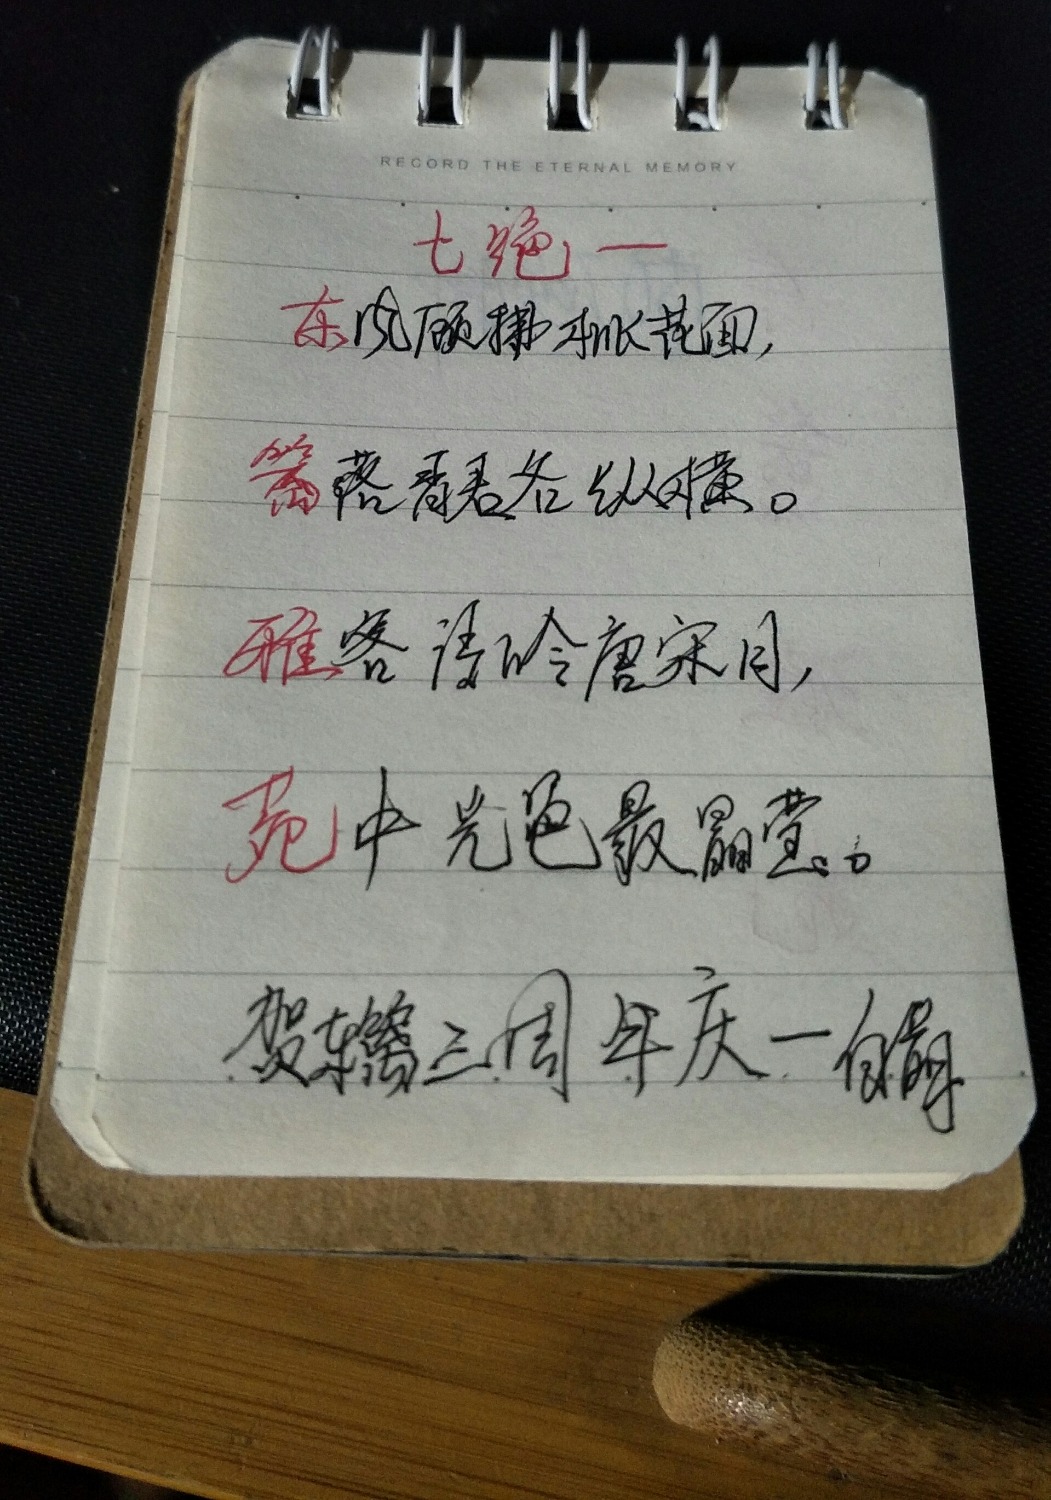 RECORD THE ETERNAL MEMORY
七绝一
东风颀拂桃花面，
篱落看君各纵横。
雅客请吟唐宋月，
苑中光色最晶莹。
贺东篱三周年庆一白